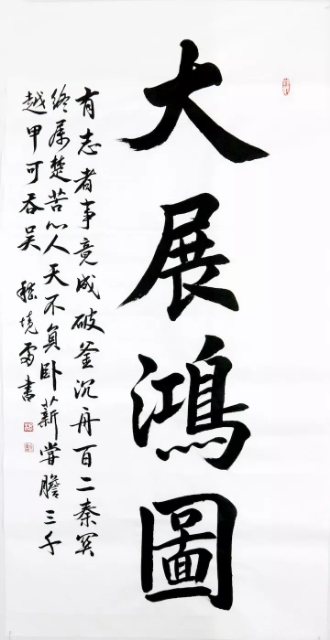 大展鴻圖
有志者事竟成破釜沉舟百二秦關
终属楚苦心人天不負卧薪嘗膽三千
越甲可吞吴 書